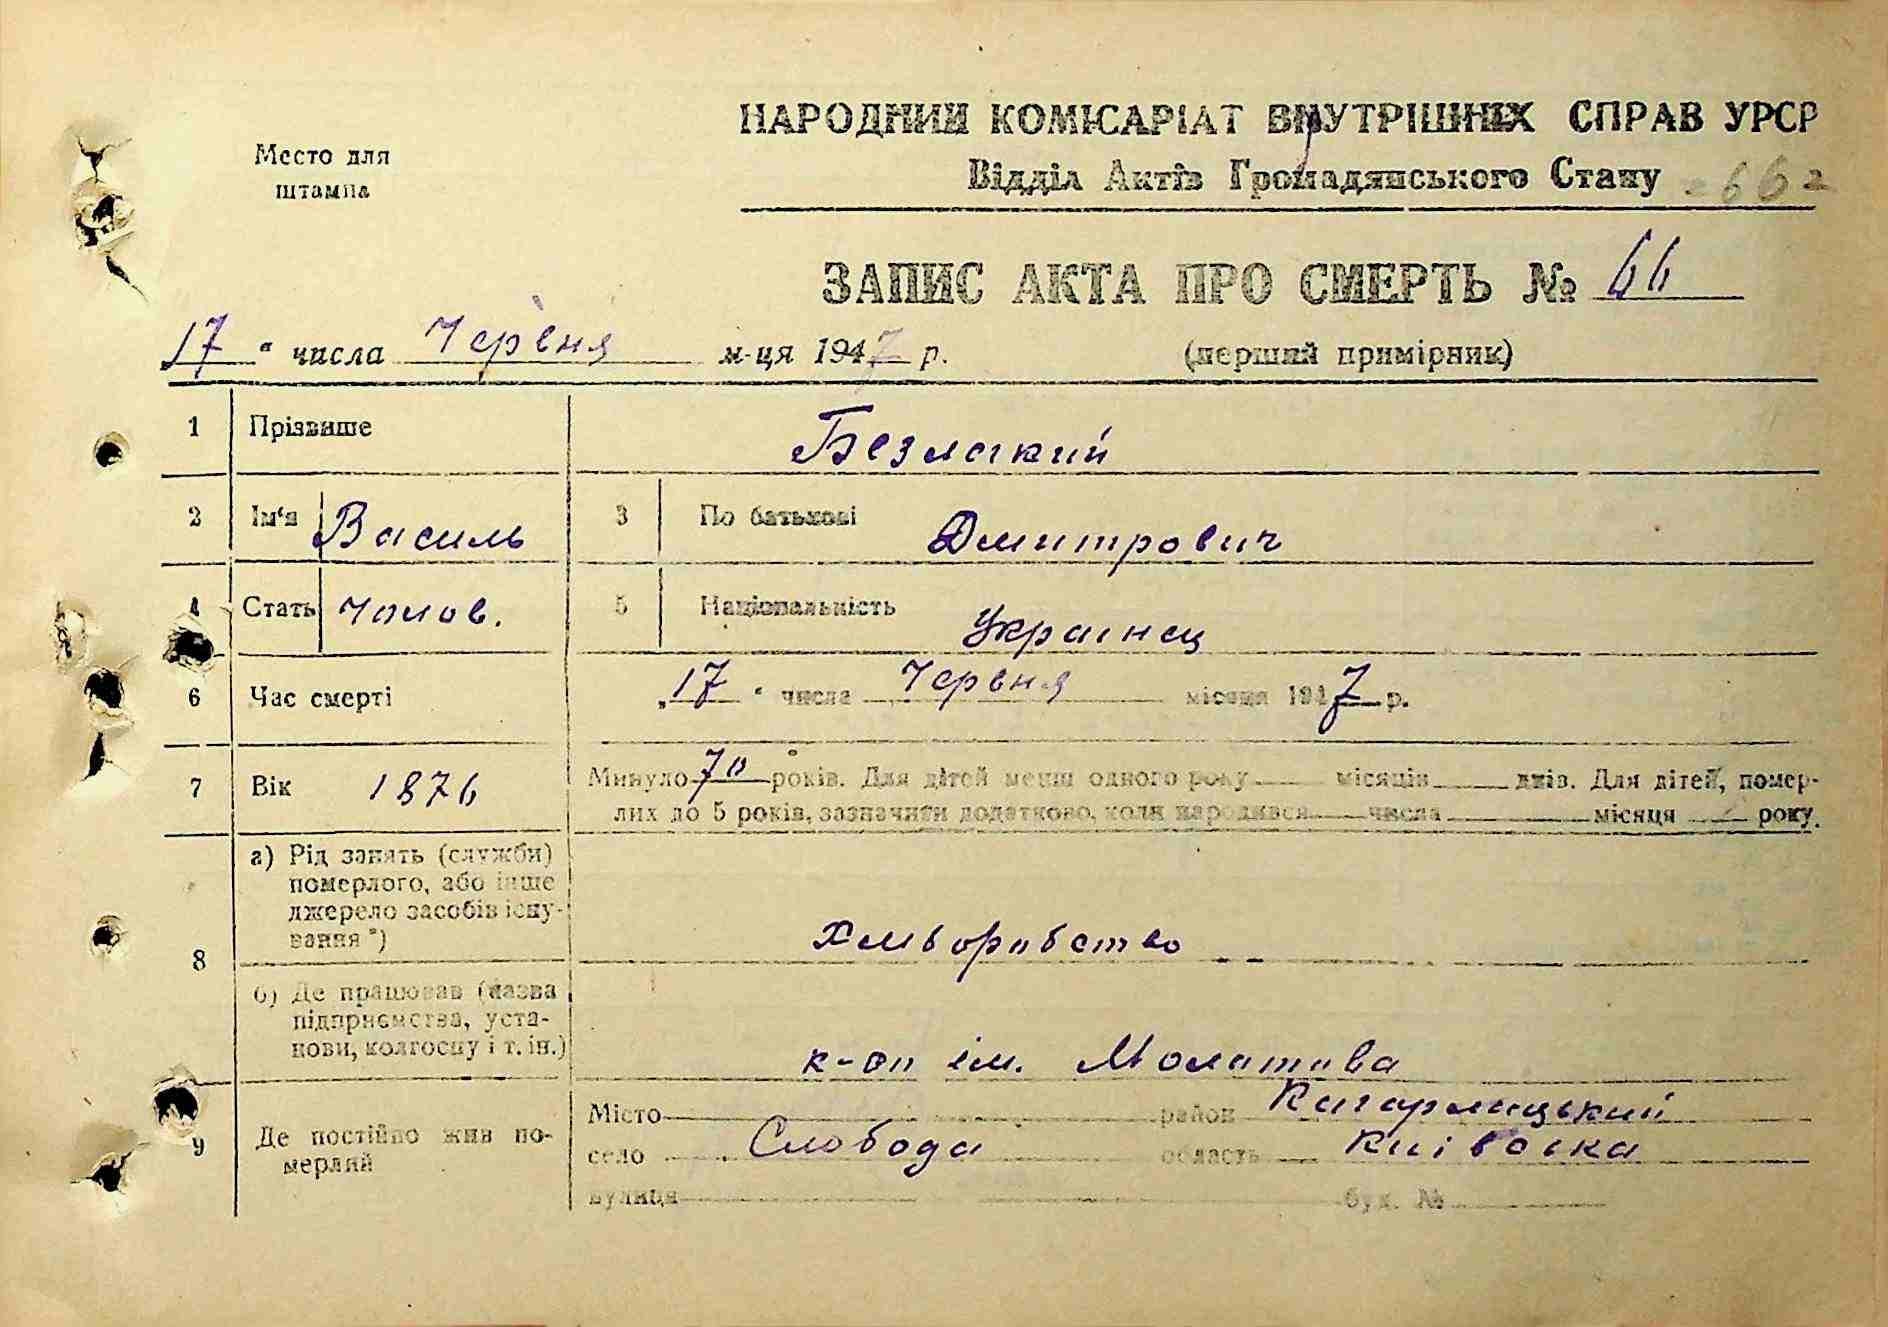 НАРОДНИЙ КОМІСАРІАТ ВНУТРІШНІХ СПРАВ УРСР
Место для
штампа
Відділ Актів Громадянського Стану 66
ЗАПИС АКТА ПРО СМЕРТЬ № 66
17 " числа Червня м-ця 1947 р. (перший примірник)
1 Прізвище Безлюкий
2 Ім'я Василь 3 По батькові Дмитрович
4 Стать Чолов. 5 Національність Украінец
6 Час смерті „17 " числа Червня місяця 1947 р.
7 Вік 1876 Минуло 70 років. Для дітей менш одного року місяців днів. Для дітей, помер-
лих до 5 років, зазначити додатково, коли народився числа місяця року.
8
а) Рід занять (служби)
померлого, або інше
джерело засобів існу-
вання *)
Хлеборобство
б) Де працював (назва
підприємства, уста-
нови, колгоспу і т. ін.)
к-оп ім. Молотова
9 Де постійно жив по-
мерлий
Місто район Кагарлицький
село Слобода область Київська
вулиця буд. №